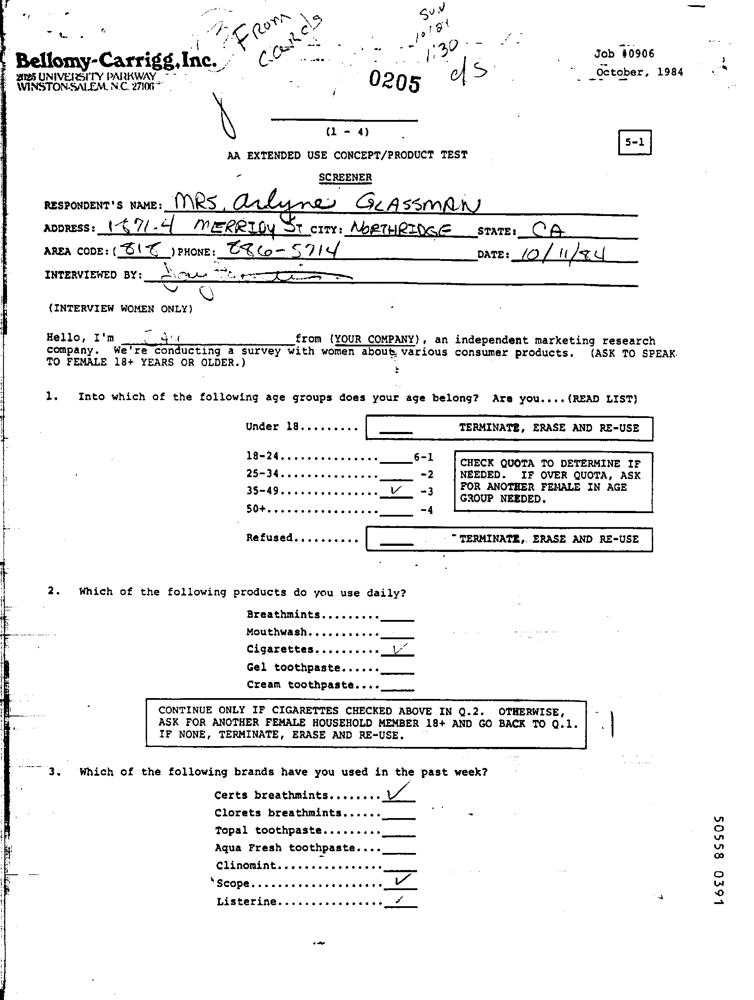 From
Cards
SUN
10/81
1:30
Bellomy-Carrigg, Inc.
UNIVERSITY PARKWAY
WINSTON-SALEM, N.C. 27106
0205
c/s
Job #0906
October, 1984
(1 - 4)
5-1
AA EXTENDED USE CONCEPT/PRODUCT TEST
SCREENER
RESPONDENT'S NAME: MRS. Arlyne GLASSMAN
ADDRESS: MERRIDY ST CITY: NORTHRIDGE STATE: CA
AREA CODE: (818) PHONE: 886-5714 DATE: 10/11/84
INTERVIEWED BY:
(INTERVIEW WOMEN ONLY)
Hello, I'm from (YOUR COMPANY), an independent marketing research
company. We're conducting a survey with women about various consumer products. (ASK TO SPEAK
TO FEMALE 18+ YEARS OR OLDER.)
1. Into which of the following age groups does your age belong? Are you....(READ LIST)
Under 18......... ____ TERMINATE, ERASE AND RE-USE
18-24...............____6-1
25-34...............____ -2
35-49..............._✓_ -3
50+.................____ -4
CHECK QUOTA TO DETERMINE IF
NEEDED. IF OVER QUOTA, ASK
FOR ANOTHER FEMALE IN AGE
GROUP NEEDED.
Refused.......... ____ TERMINATE, ERASE AND RE-USE
2. Which of the following products do you use daily?
Breathmints.........____
Mouthwash...........____
Cigarettes.......... ✓
Gel toothpaste......____
Cream toothpaste....____
CONTINUE ONLY IF CIGARETTES CHECKED ABOVE IN Q.2. OTHERWISE,
ASK FOR ANOTHER FEMALE HOUSEHOLD MEMBER 18+ AND GO BACK TO Q.1.
IF NONE, TERMINATE, ERASE AND RE-USE.
3. Which of the following brands have you used in the past week?
Certs breathmints........ ✓
Clorets breathmints......____
Topal toothpaste.........____
Aqua Fresh toothpaste....____
Clinomint................____
Scope.................... ✓
Listerine................ ✓
50558 0391